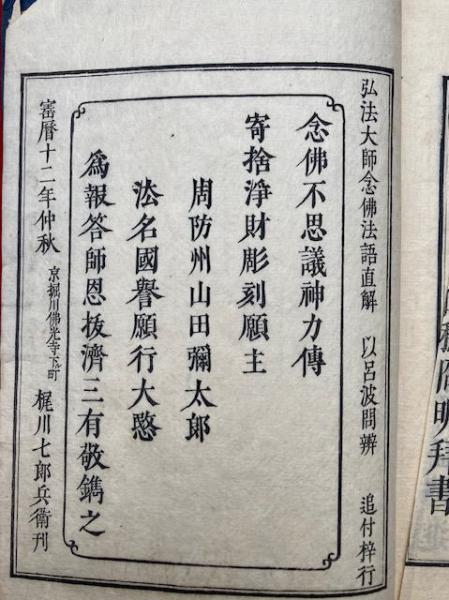 弘法大師念佛法語直解　以呂波問辨　追付梓行
念佛不思議神力傳
寄捨淨財彫刻願主
周防州山田彌太郎
法名國譽願行大愍
爲報答師恩拔濟三有敬鐫之
寳曆十二年仲秋　京堀川佛光寺下町　梶川七郎兵衛刊
拜書